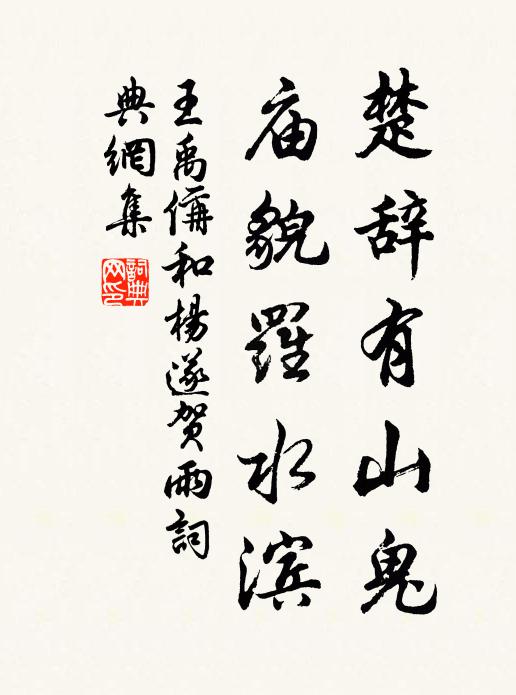 楚辞有山鬼
庙貌羅水滨
王禹偁和楊遂贺雨詞
典網集
詞典网印